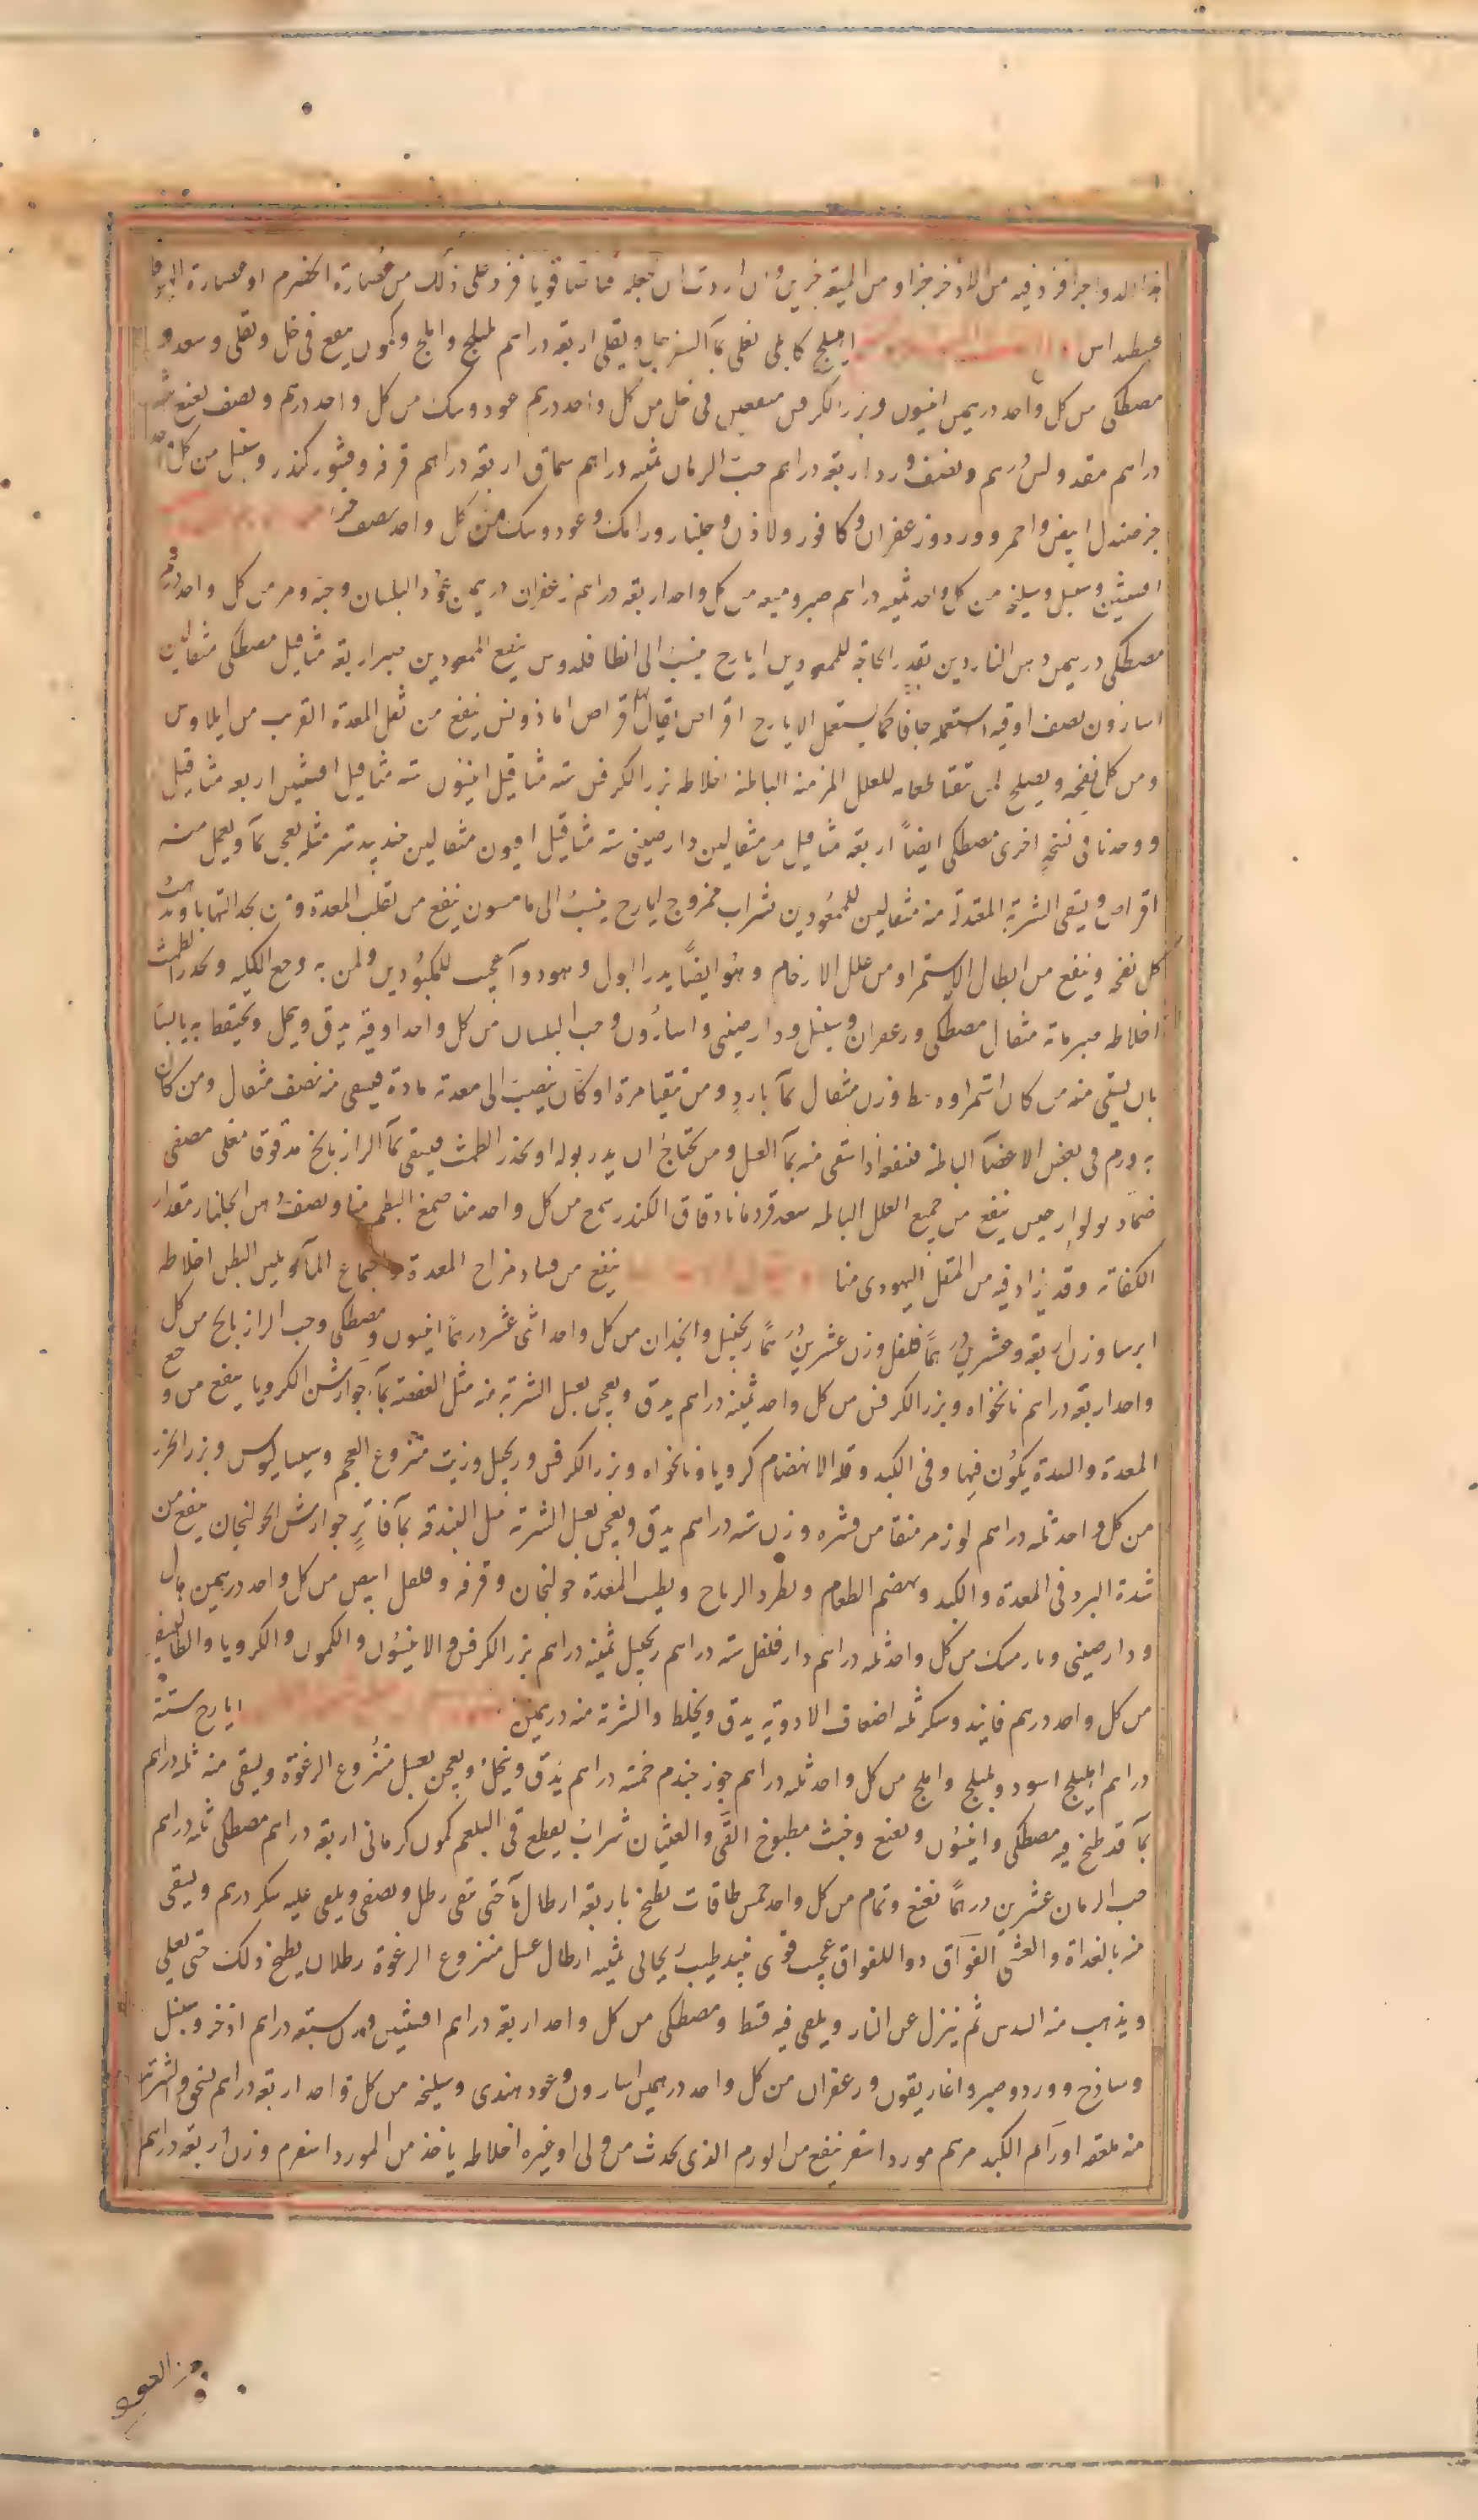 هذا الدواجزا فزد فيه من الاذخر جزا ومن الميعة جزين وان اردت ان تجعله قابضا قويا فزد على ذلك من عصارة الحصرم او عصارة
اهليلج كابلي نقلى بمآ السفرجل ويقلى اربعة دراهم بليلج واملج وكمون ينقع في خل ونقلى وسعد و
مصطكى من كل واحد درهمين انيسون وبزر الكرفس منقعين في خل من كل واحد درهم عود ومسك من كل واحد درهم ونصف نعنع
دراهم ونصف ورد اربعة دراهم حب الرمان ثمنيه دراهم سماق اربعة دراهم قرفه وقشور كندر وسنبل من كل
جز صندل ابيض واحمر وورد وزعفران وكافور ولاذن وجلنار ورامك وعود ومسك من كل واحد نصف جز
افسنتين وسنبل وسليخه من كل واحد ثمنيه دراهم صبر وميعه من كل واحد اربعة دراهم زعفران درهمين عود البلسان وحبه ومر من كل واحد درهم
مصطكى درهمين دهن الناردين بقدر الحاجة للممعودين ايارج ينسب الى انطا فلدوس ينفع الممعودين صبر اربعة مثاقيل مصطكى مثقالين
اسارون نصف اوقيه استعمله جافا كما يستعمل الايارج اقراص يقال لها اقراص اماذونس ينفع من ثقل المعدة القرب من ايلاوس
ومن كل نفخه ويصلح لمن تقيا طعامه للعلل المزمنه الباطنه اخلاطه بزر الكرفس سته مثاقيل انيسون سته مثاقيل افسنتين اربعه مثاقيل
ووجدنا في نسخة اخرى مصطكى ايضاً اربعة مثاقيل مر مثقالين دارصيني سته مثاقيل افيون مثقالين جندبيدستر مثله يعجن بمآ ويعمل منه
اقراص ويسقى الشربة المعتدلة منه مثقالين للممعودين بشراب ممزوج ايارج ينسب الى ماسون ينفع من تقلب المعدة ومن يجد التهابا
كل نفخه وينفع من ابطال الاستمرا ومن علل الارحام وهو ايضاً يدر البول وهو دوآ عجيب للمكبودين ولمن به وجع الكليه ويحدر الطمث
اخلاطه صبر مائة مثقال مصطكى وزعفران وسنبل ودارصيني واسارون وحب البلسان من كل واحد اوقيه يدق وينخل ويحتفظ به يابسا
بان يسقى منه من كان استمراوه بط وزن مثقال بمآ بارد ومن تقيا مرة او كان ينصب الى معدته مادة فيسقى منه نصف مثقال ومن كان
به ورم في بعض الاعضآ الباطنه فينفعه اذا سقى منه بمآ العسل ومن يحتاج ان يدر بوله او يحدر الطمث فيسقى بمآ الرازيانج مدقوقا مغلى مصفى
ضماد بولوارحيس ينفع من جميع العلل الباطنه سعد قردمانا دقاق الكندر شمع من كل واحد منا صمغ البطم منا ونصف دهن الجلنار مقدار
الكفاته وقد يزاد فيه من المقل اليهودى منا ينفع من فساد مزاج المعدة واجتماع المآ ويلين البطن اخلاطه
ايرسا وزن اربعة وعشرين درهماً فلفل وزن عشرين درهماً زنجبيل وانجدان من كل واحد اثنى عشر درهماً انيسون ومصطكى وحب الرازيانج من كل
واحد اربعة دراهم نانخواه وبزر الكرفس من كل واحد ثمنيه دراهم يدق ويعجن بعسل الشربة منه مثل العفصة بمآ جوارشن الكرويا ينفع من وجع
المعدة والسدة يكون فيها وفي الكبد وقله الانهضام كرويا ونانخواه وبزر الكرفس وزنجبيل وزبيب منزوع العجم وسيساليوس وبزر الجزر
من كل واحد ثلثه دراهم لوز مر منقا من قشره وزن سته دراهم يدق ويعجن بعسل الشربة مثل البندقه بمآ فاتر جوارشن الخولنجان ينفع من
شدة البرد في المعدة والكبد ويهضم الطعام ويطرد الرياح ويطيب المعدة خولنجان وقرفه وفلفل ابيض من كل واحد درهمين هال
ودارصيني ونارمسك من كل واحد ثلثه دراهم دارفلفل سته دراهم زنجبيل ثمنيه دراهم بزر الكرفس والانيسون والكمون والكرويا
من كل واحد درهم فانيد وسكر ثلثه اضعاف الادوية يدق ويخلط والشربة منه درهمين ايارج ستة
دراهم اهليلج اسود وبليلج واملج من كل واحد ثلثه دراهم جوز جندم خمسة دراهم يدق وينخل ويعجن بعسل منزوع الرغوة ويسقى منه ثلثه دراهم
بمآ قد طبخ فيه مصطكى وانيسون ونعنع وخبث مطبوخ القي والغثيان شراب يقطع قي البلغم كمون كرماني اربعة دراهم مصطكى ثلثه دراهم
حب الرمان عشرين درهماً نعنع ونمام من كل واحد خمس طاقات يطبخ باربعة ارطال مآ حتى يبقى رطل ويصفى ويلقى عليه سكر درهم ويسقى
منه بالغداة والعشي الفواق دوا للفواق عجيب قوى نبيد طيب ريحاني ثمنيه ارطال عسل منزوع الرغوة رطلان يطبخ ذلك حتى يغلي
ويذهب منه السدس ثم ينزل عن النار ويلقى فيه قسط ومصطكى من كل واحد اربعة دراهم افسنتين وزن سبعه دراهم اذخر وسنبل
وساذج وورد وصبر واغاريقون وزعفران من كل واحد درهمين اسارون وعود هندى وسليخه من كل واحد اربعة دراهم
منه ملعقه اورام الكبد مرهم مورد اسفرم ينفع من الورم الذى يحدث من ولى او غيره اخلاطه ياخذ من المورد اسفرم وزن اربعة دراهم